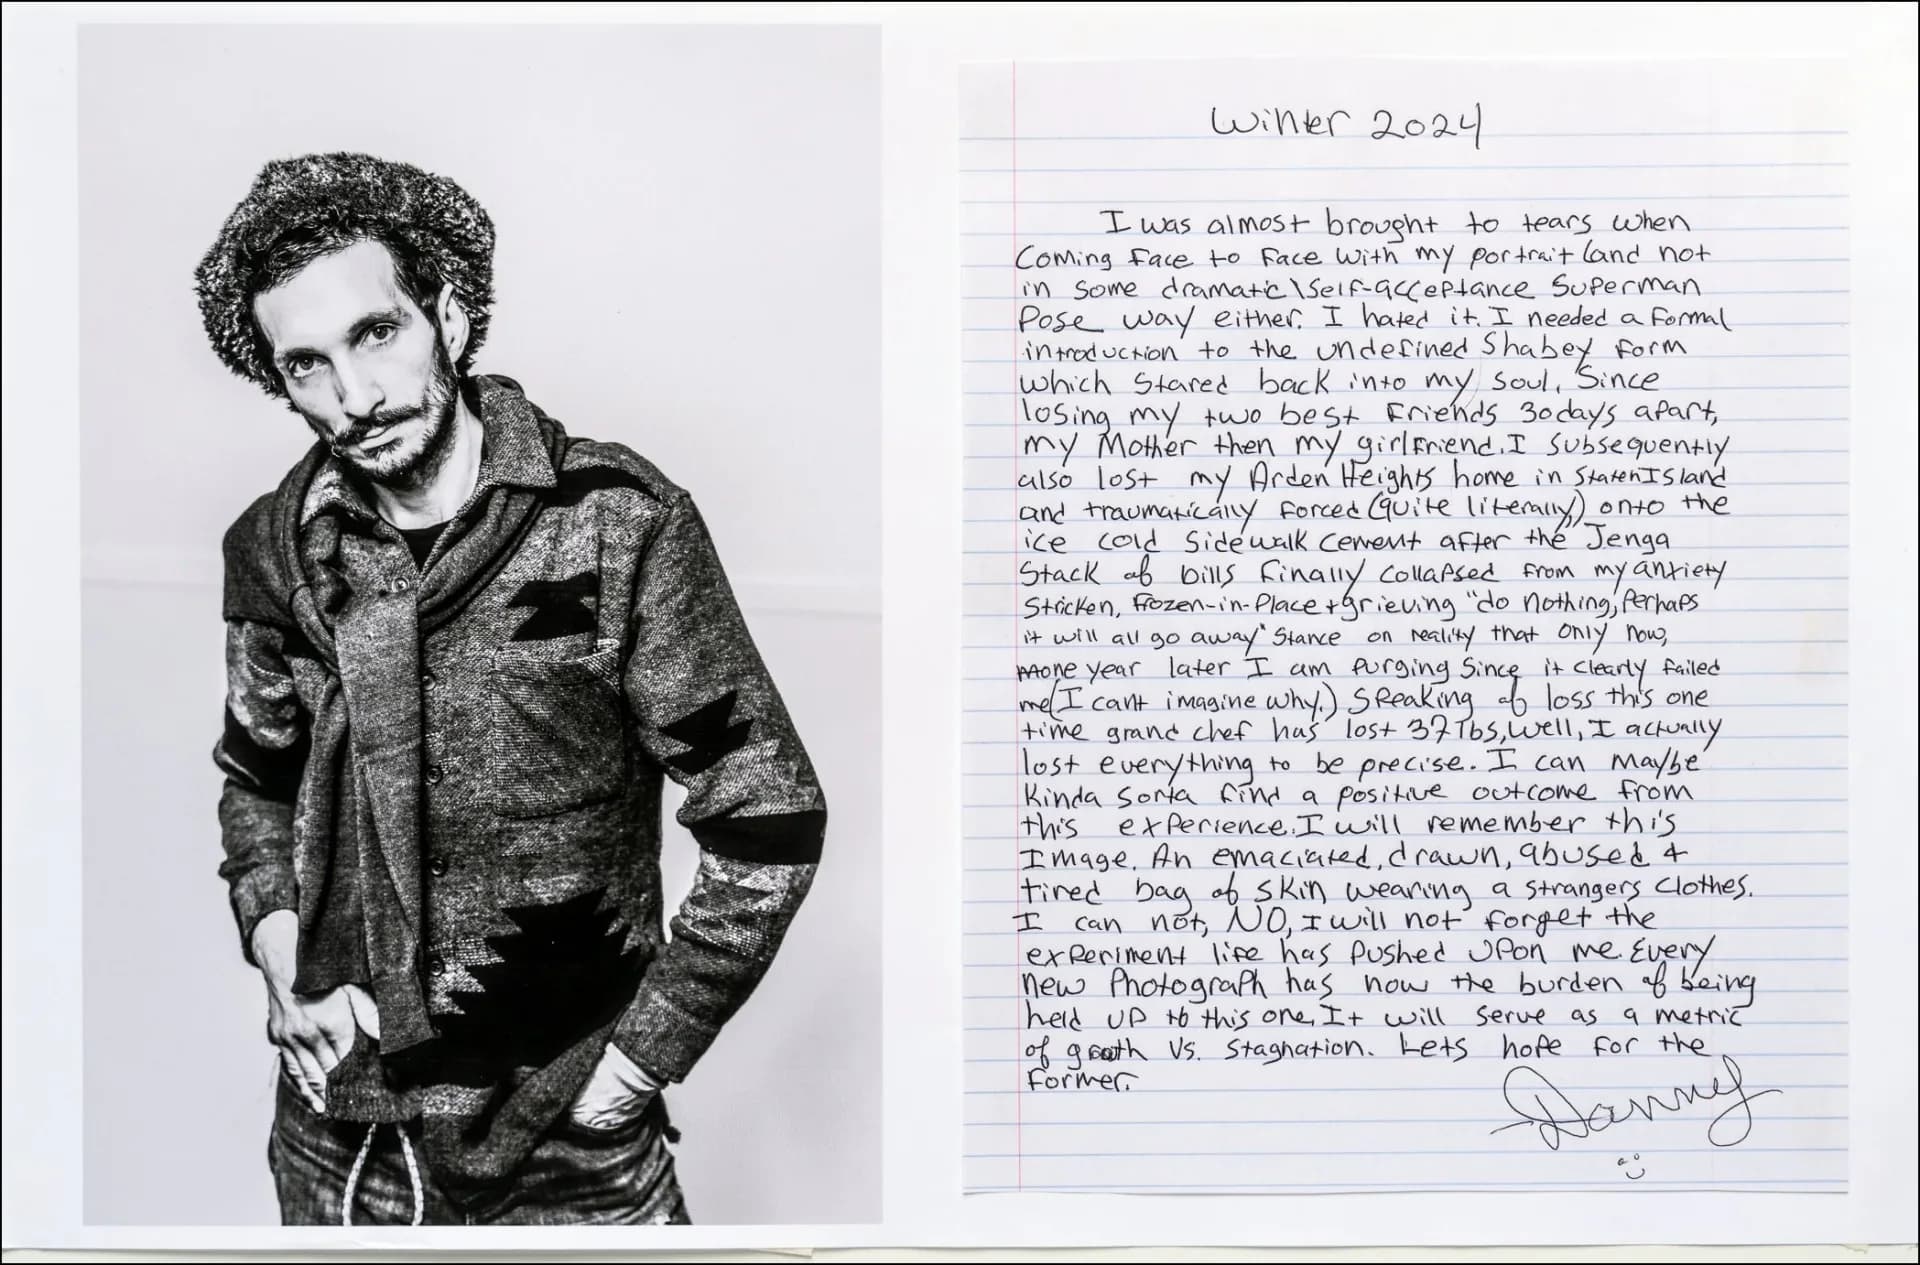 Winter 2024
I was almost brought to tears when
Coming face to face with my portrait (and not
in some dramatic\self-acceptance Superman
Pose way either. I hated it. I needed a formal
introduction to the undefined Shabey form
which stared back into my soul. Since
losing my two best friends 30 days apart,
my Mother then my girlfriend. I subsequently
also lost my Arden Heights home in Staten Island
and traumatically forced (quite literally) onto the
ice cold sidewalk cement after the Jenga
Stack of bills finally collapsed from my anxiety
stricken, frozen-in-place + grieving "do nothing, Perhaps
it will all go away" stance on reality that only now,
one year later I am purging since it clearly failed
me (I cant imagine why.) Speaking of loss this one
time grand chef has lost 37 lbs, well, I actually
lost everything to be precise. I can maybe
Kinda sorta find a positive outcome from
this experience. I will remember this
Image. An emaciated, drawn, abused &
tired bag of skin wearing a strangers clothes.
I can not, NO, I will not forget the
experiment life has pushed upon me. Every
new Photograph has now the burden of being
held up to this one. It will serve as a metric
of growth vs. stagnation. Lets hope for the
former.
Danny